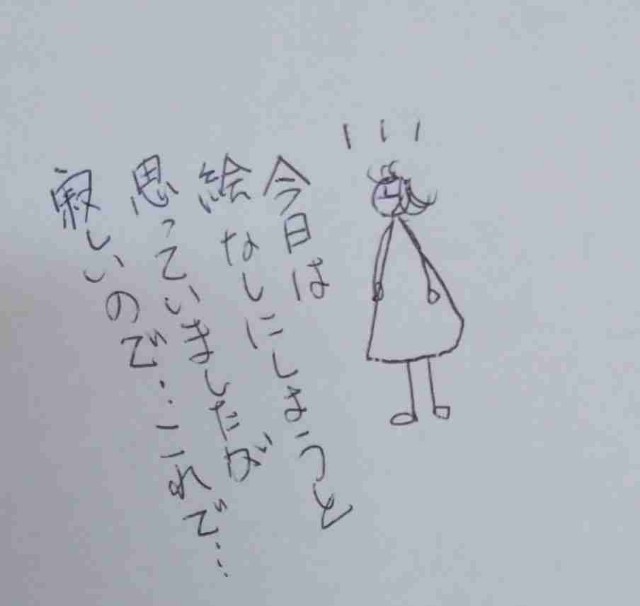 今日は
絵なしにしようと
思っていましたが
寂しいので…これで…